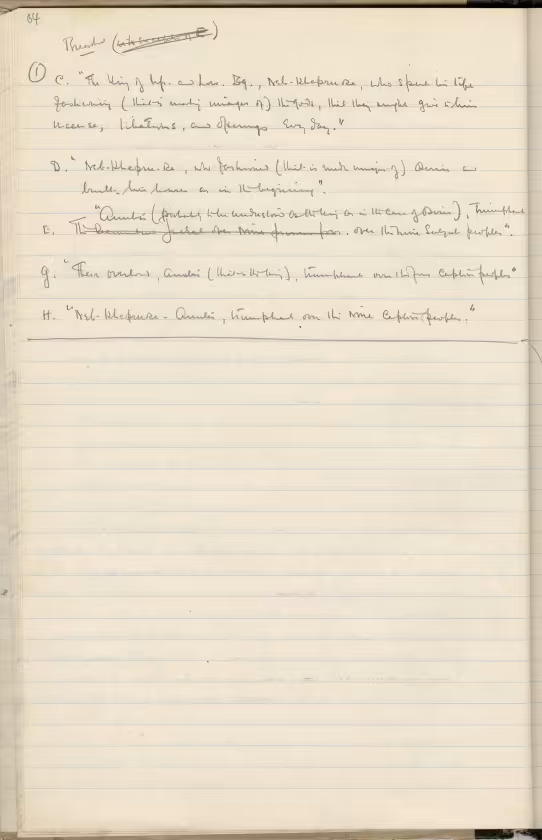 64
Breasted
① C. "The King of Up. and Low. Eg., Neb-Kheperu-Re, who spent his life
fashioning (that is making images of) the gods, that they might give to him
incense, libations, and offerings every day."
D. "Neb-Kheperu-Re, who fashioned (that is made images of) Osiris and
built his house as in the beginning".
"Anubis (probably to be understood as the king as in the case of Osiris), Triumphant
E. The over nine over the nine Subject peoples".
G. "Their overlord, Anubis (that is the king), triumphant over the four captive peoples"
H. "Neb-kheperu-Re - Anubis, triumphant over the Nine Captive peoples."